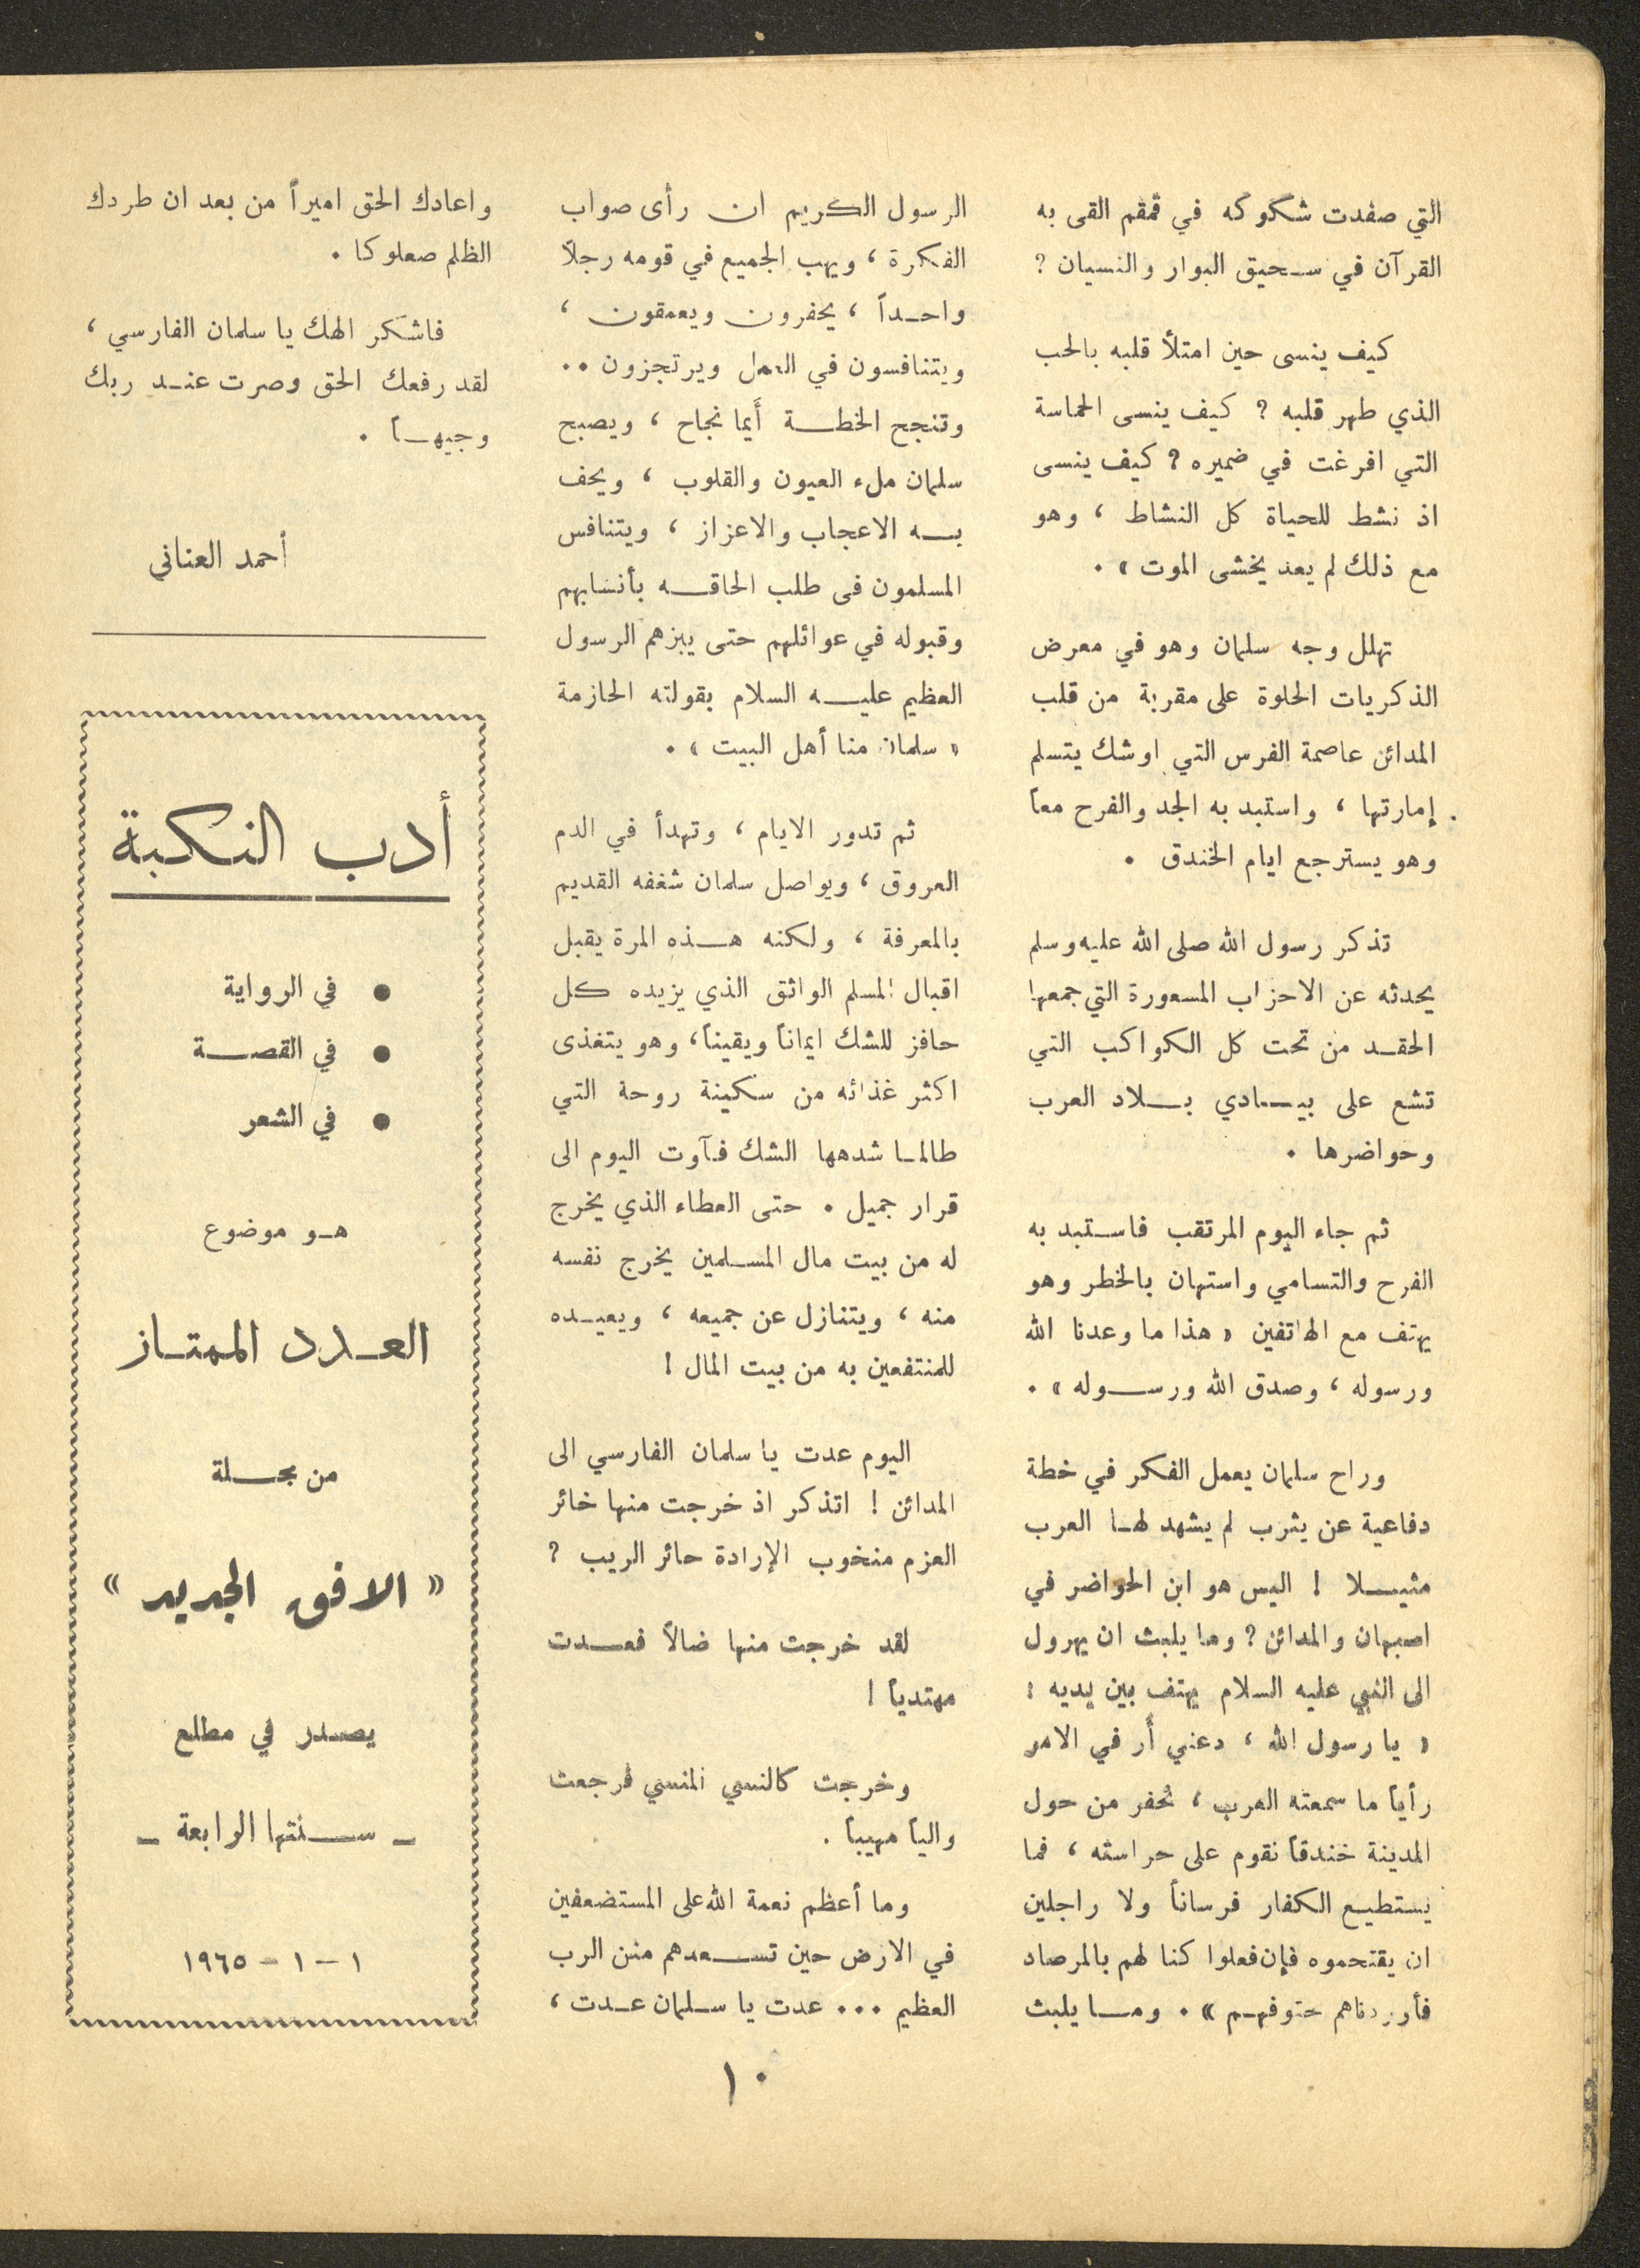 التي صفدت شكوكه في قمقم القى به
القرآن في سحيق البوار والنسيان ?
كيف ينسى حين امتلأ قلبه بالحب
الذي طهر قلبه ? كيف ينسى الحماسة
التي افرغت في ضميره ? كيف ينسى
اذ نشط للحياة كل النشاط ، وهو
مع ذلك لم يعد يخشى الموت » .
تهلل وجه سلمان وهو في معرض
الذكريات الحلوة على مقربة من قلب
المدائن عاصمة الفرس التي اوشك يتسلم
إمارتها ، واستبد به الجد والفرح معاً
وهو يسترجع ايام الخندق .
تذكر رسول الله صلى الله عليه وسلم
يحدثه عن الاحزاب المسعورة التي جمعها
الحقد من تحت كل الكواكب التي
تشع على بيادي بلاد العرب
وحواضرها .
ثم جاء اليوم المرتقب فاستبد به
الفرح والتسامي واستهان بالخطر وهو
يهتف مع الهاتفين « هذا ما وعدنا الله
ورسوله ، وصدق الله ورسوله » .
وراح سلمان يعمل الفكر في خطة
دفاعية عن يثرب لم يشهد لها العرب
مثيلا ! اليس هو ابن الحواضر في
اصبهان والمدائن ? وما يلبث ان يهرول
الى النبي عليه السلام يهتف بين يديه :
« يا رسول الله ، دعني أَر في الامر
رأياً ما سمعته العرب ، نُحفر من حول
المدينة خندقاً نقوم على حراسته ، فما
يستطيع الكفار فرساناً ولا راجلين
ان يقتحموه فإن فعلوا كنا لهم بالمرصاد
فأوردناهم حتوفهم » . وما يلبث
الرسول الكريم ان رأى صواب
الفكرة ، ويهب الجميع في قومه رجلاً
واحداً ، يحفرون ويعمقون ،
ويتنافسون في العمل ويرتجزون ..
وتنجح الخطة أَيما نجاح ، ويصبح
سلمان ملء العيون والقلوب ، ويحف
به الاعجاب والاعزاز ، ويتنافس
المسلمون في طلب الحاقه بأنسابهم
وقبوله في عوائلهم حتى يبزهم الرسول
العظيم عليه السلام بقولته الحازمة
« سلمان منا أهل البيت » .
ثم تدور الايام ، وتهدأ في الدم
العروق ، ويواصل سلمان شغفه القديم
بالمعرفة ، ولكنه هذه المرة يقبل
اقبال المسلم الواثق الذي يزيده كل
حافز للشك ايماناً ويقيناً ، وهو يتغذى
اكثر غذائه من سكينة روحة التي
طالما شدهها الشك فآوت اليوم الى
قرار جميل . حتى العطاء الذي يخرج
له من بيت مال المسلمين يخرج نفسه
منه ، ويتنازل عن جميعه ، ويعيده
للمنتفعين به من بيت المال !
اليوم عدت يا سلمان الفارسي الى
المدائن ! اتذكر اذ خرجت منها خائر
العزم منخوب الإرادة حائر الريب ?
لقد خرجت منها ضالاً فعدت
مهتدياً !
وخرجت كالنسي المنسي فرجعت
والياً مهيباً .
وما أعظم نعمة الله على المستضعفين
في الارض حين تسعدهم منن الرب
العظيم ... عدت يا سلمان عدت ،
واعادك الحق اميراً من بعد ان طردك
الظلم صعلوكا .
فاشكر الهك يا سلمان الفارسي ،
لقد رفعك الحق وصرت عند ربك
وجيهاً .
أحمد العناني
أدب النكبة
● في الرواية
● في القصة
● في الشعر
هو موضوع
العدد الممتاز
من مجلة
« الافق الجديد »
يصدر في مطلع
ـ سنتها الرابعة ـ
١ - ١ - ١٩٦٥
١٠